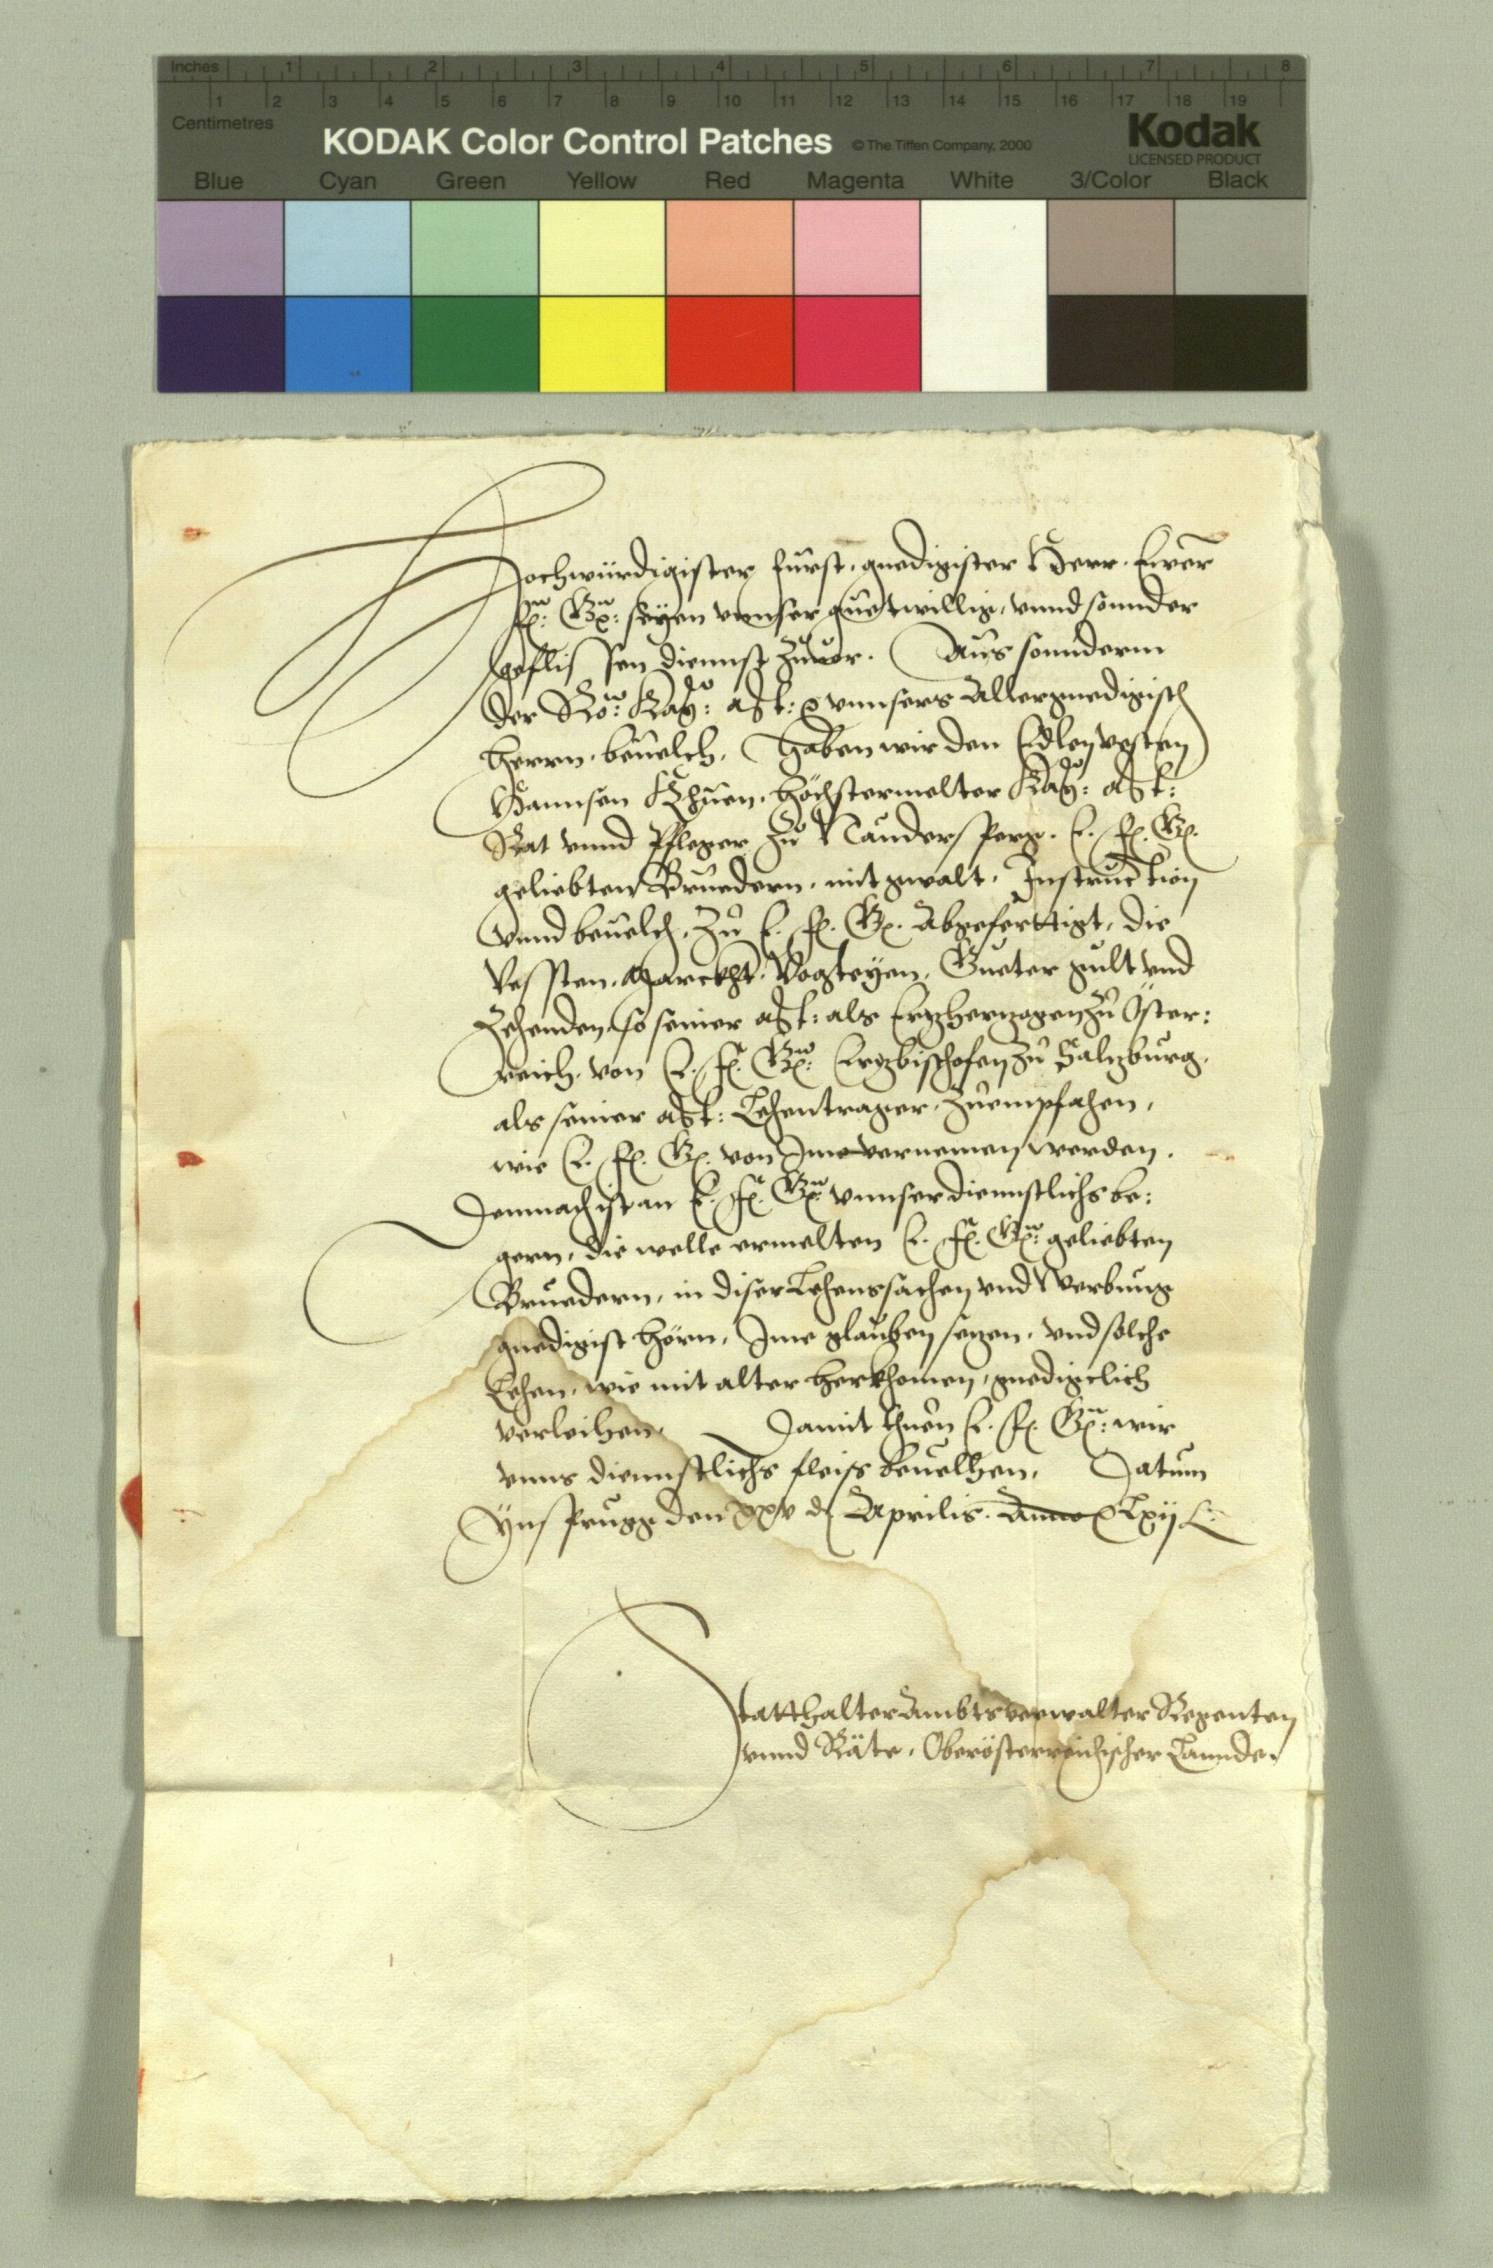 Inches 1 2 3 4 5 6 7 8
1 2 3 4 5 6 7 8 9 10 11 12 13 14 15 16 17 18 19
Centimetres
KODAK Color Control Patches © The Tiffen Company, 2000 Kodak
LICENSED PRODUCT
Blue Cyan Green Yellow Red Magenta White 3/Color Black
Hochwürdigister Fürst, gnedigister Herr. Ewer
fr: Gn: seyen vnnser guetwillig, vnnd sonnder
geflissen diennst zuuor. Aus sonnderm
der Rö: Kay: Mt: vnnsers Allergnedigisten
herrn, beuelch, haben wir den Edlen vesten
Hannsen Khuen, höchstermelter Kay: Mt:
Rat vnnd Pfleger zu Naudersperg. E. fr. Gn.
geliebten Bruedern, mit gwalt, Instruction
vnnd beuelch, zu E. fr. Gn. Abgeferttigt, die
Vessten, Märckht, Vogteyen, Gueter gült vnd
Zehenden, so seiner Mt: als Ertzhertzogen zu Öster:
reich, von E. fr. Gn: Ertzbischofen zu Saltzburg,
als seiner Mt: Lehentrager, zu empfahen,
wie E. fr. Gn. von Ime vernemen werden.
Demnach ist an E. fr. Gn: vnnser diennstlichs be:
gern, die welle ermelten E. fr. Gn: geliebten
Bruedern, in diser Lehenssachen vnd Werbung
gnedigist hörn, Ime glauben setzen, vnd solche
Lehen, wie mit alter herkhomen, gnedigclich
verleihen. Damit thuen E. fr. Gn: wir
vnns diennstlichs fleiss beuelhen. Datum
Ynsprugg den xxv Aprilis. Anno Lxij
Statthalter Ambtsverwalter Regenten
vnnd Räte, Oberösterreichischer Lannde.